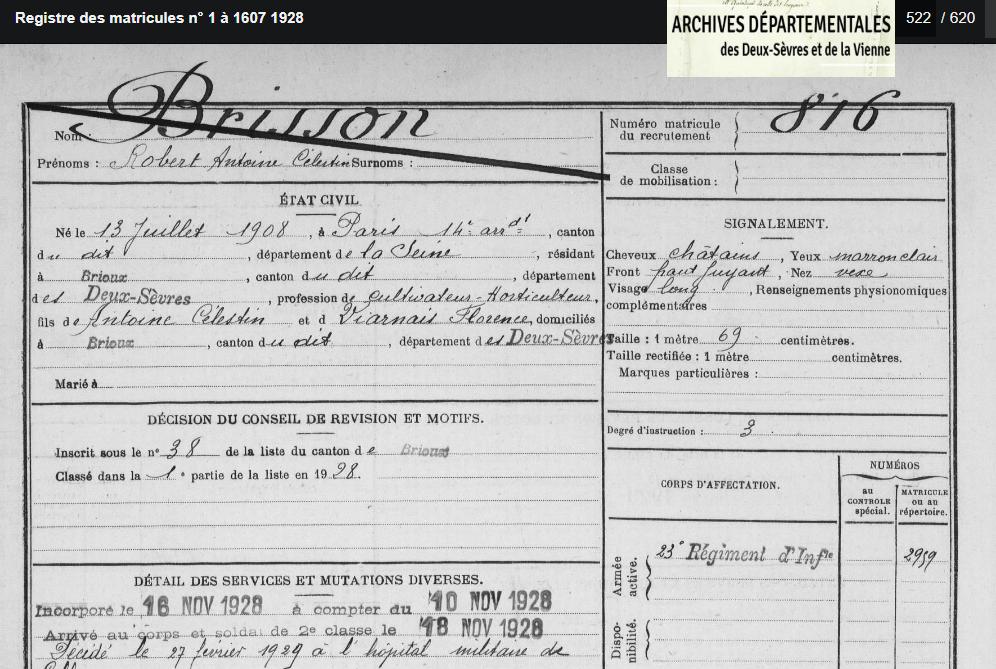 Registre des matricules n° 1 à 1607 1928
ARCHIVES DÉPARTEMENTALES
des Deux-Sèvres et de la Vienne
522 / 620
Brisson
Nom :
Prénoms : Robert Antoine Célestin Surnoms :
ÉTAT CIVIL.
Né le 13 Juillet 1908, à Paris 14e arrdt, canton
du dit, département de la Seine, résidant
à Brioux, canton du dit, département
des Deux-Sèvres, profession de cultivateur-Horticulteur,
fils de Antoine Célestin et d Viarnais Florence, domiciliés
à Brioux, canton du dit, département des Deux-Sèvres
Marié à
DÉCISION DU CONSEIL DE REVISION ET MOTIFS.
Inscrit sous le n° 38 de la liste du canton de Brioux
Classé dans la 1e partie de la liste en 1928.
DÉTAIL DES SERVICES ET MUTATIONS DIVERSES.
Incorporé le 16 NOV 1928 à compter du 10 NOV 1928
Arrivé au corps et soldat de 2e classe le 18 NOV 1928
Décédé le 27 février 1929 à l'hôpital militaire de
Numéro matricule du recrutement } 816
Classe de mobilisation : }
SIGNALEMENT.
Cheveux châtains, Yeux marron clair
Front haut fuyant, Nez vexe
Visage long, Renseignements physionomiques
complémentaires
Taille : 1 mètre 69 centimètres.
Taille rectifiée : 1 mètre centimètres.
Marques particulières :
Degré d'instruction : 3.
CORPS D'AFFECTATION.
NUMÉROS
au CONTROLE spécial.
MATRICULE ou au répertoire.
Armée active.
23e Régiment d'Infie 2959
Disponibilité.